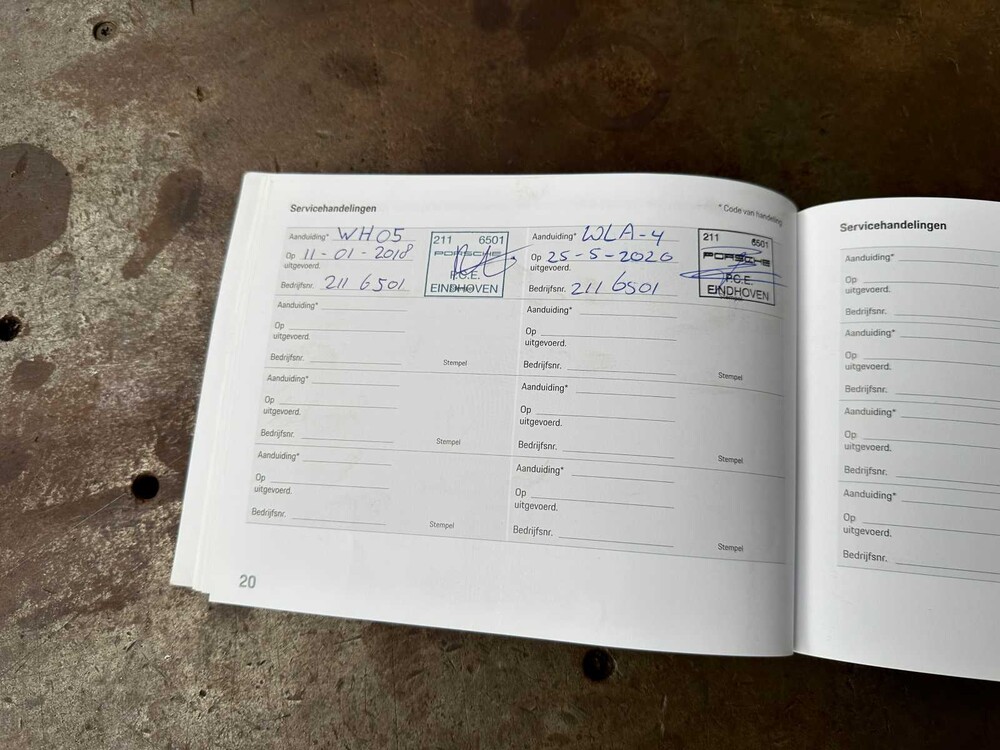 Servicehandelingen
* Code van handeling
Aanduiding* WH05
Op 11-01-2018
uitgevoerd.
Bedrijfsnr. 211 6501
211 6501
PORSCHE
P.C.E.
EINDHOVEN
Aanduiding* WLA-4
Op 25-5-2020
uitgevoerd.
Bedrijfsnr. 211 6501
211 6501
PORSCHE
P.C.E.
EINDHOVEN
Aanduiding*
Op
uitgevoerd.
Bedrijfsnr.
Stempel
Aanduiding*
Op
uitgevoerd.
Bedrijfsnr.
Stempel
Aanduiding*
Op
uitgevoerd.
Bedrijfsnr.
Stempel
Aanduiding*
Op
uitgevoerd.
Bedrijfsnr.
Stempel
Aanduiding*
Op
uitgevoerd.
Bedrijfsnr.
Stempel
Aanduiding*
Op
uitgevoerd.
Bedrijfsnr.
Stempel
20
Servicehandelingen
Aanduiding*
Op
uitgevoerd.
Bedrijfsnr.
Aanduiding*
Op
uitgevoerd.
Bedrijfsnr.
Aanduiding*
Op
uitgevoerd.
Bedrijfsnr.
Aanduiding*
Op
uitgevoerd.
Bedrijfsnr.